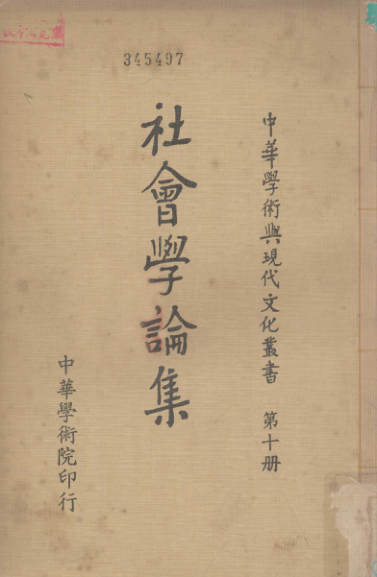 345497
中華學術與現代文化叢書 第十册
社會學論集
中華學術院印行